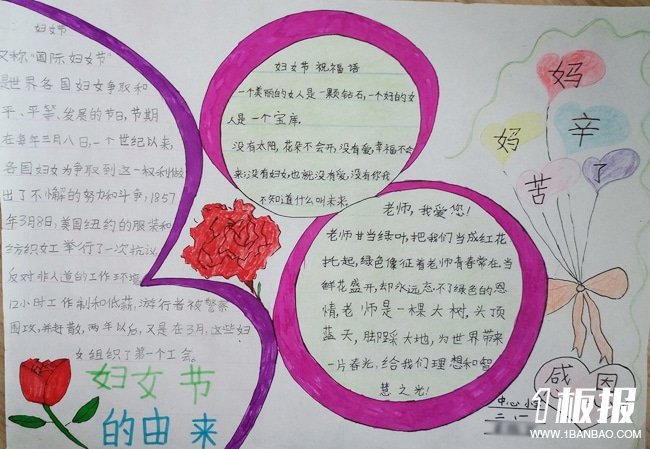 妇女节
又称"国际妇女节"
是世界各国妇女争取和
平、平等、发展的节日,节期
在每年三月八日,一个世纪以来,
各国妇女为争取到这一权利做
出了不懈的努力和斗争,1857
年3月8号,美国纽约的服装和
纺织女工举行了一次抗议,
反对非人道的工作环境,
12小时工作制和低薪,游行者被警察
围攻,并赶散,两年以后,又是在3月,这些妇
女组织了第一个工会。
妇女节
的由来
妇女节祝福语
一个美丽的女人是一颗钻石,一个好的女
人是一个宝库,
没有太阳,花朵不会开,没有爱,幸福不会
来,没有妇女,也就没有爱,没有你我
不知道什么叫未来,
老师,我爱您!
老师甘当绿叶,把我们当成红花
托起,绿色像征着老师青春常在,当
鲜花盛开,却永远忘不了绿色的恩
情,老师是一棵大树,头顶
蓝天,脚踩大地,为世界带来
一片春光,给我们理想和智
慧之光!
妈
妈
辛
苦
了
感恩
中心小
二、一
板报
WWW.1BANBAO.COM